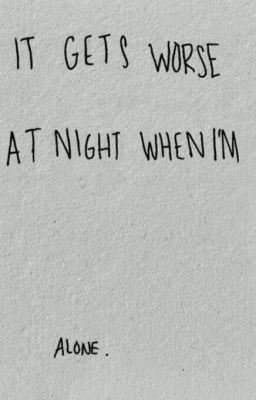 IT GETS WORSE
AT NIGHT WHEN I'M
ALONE.